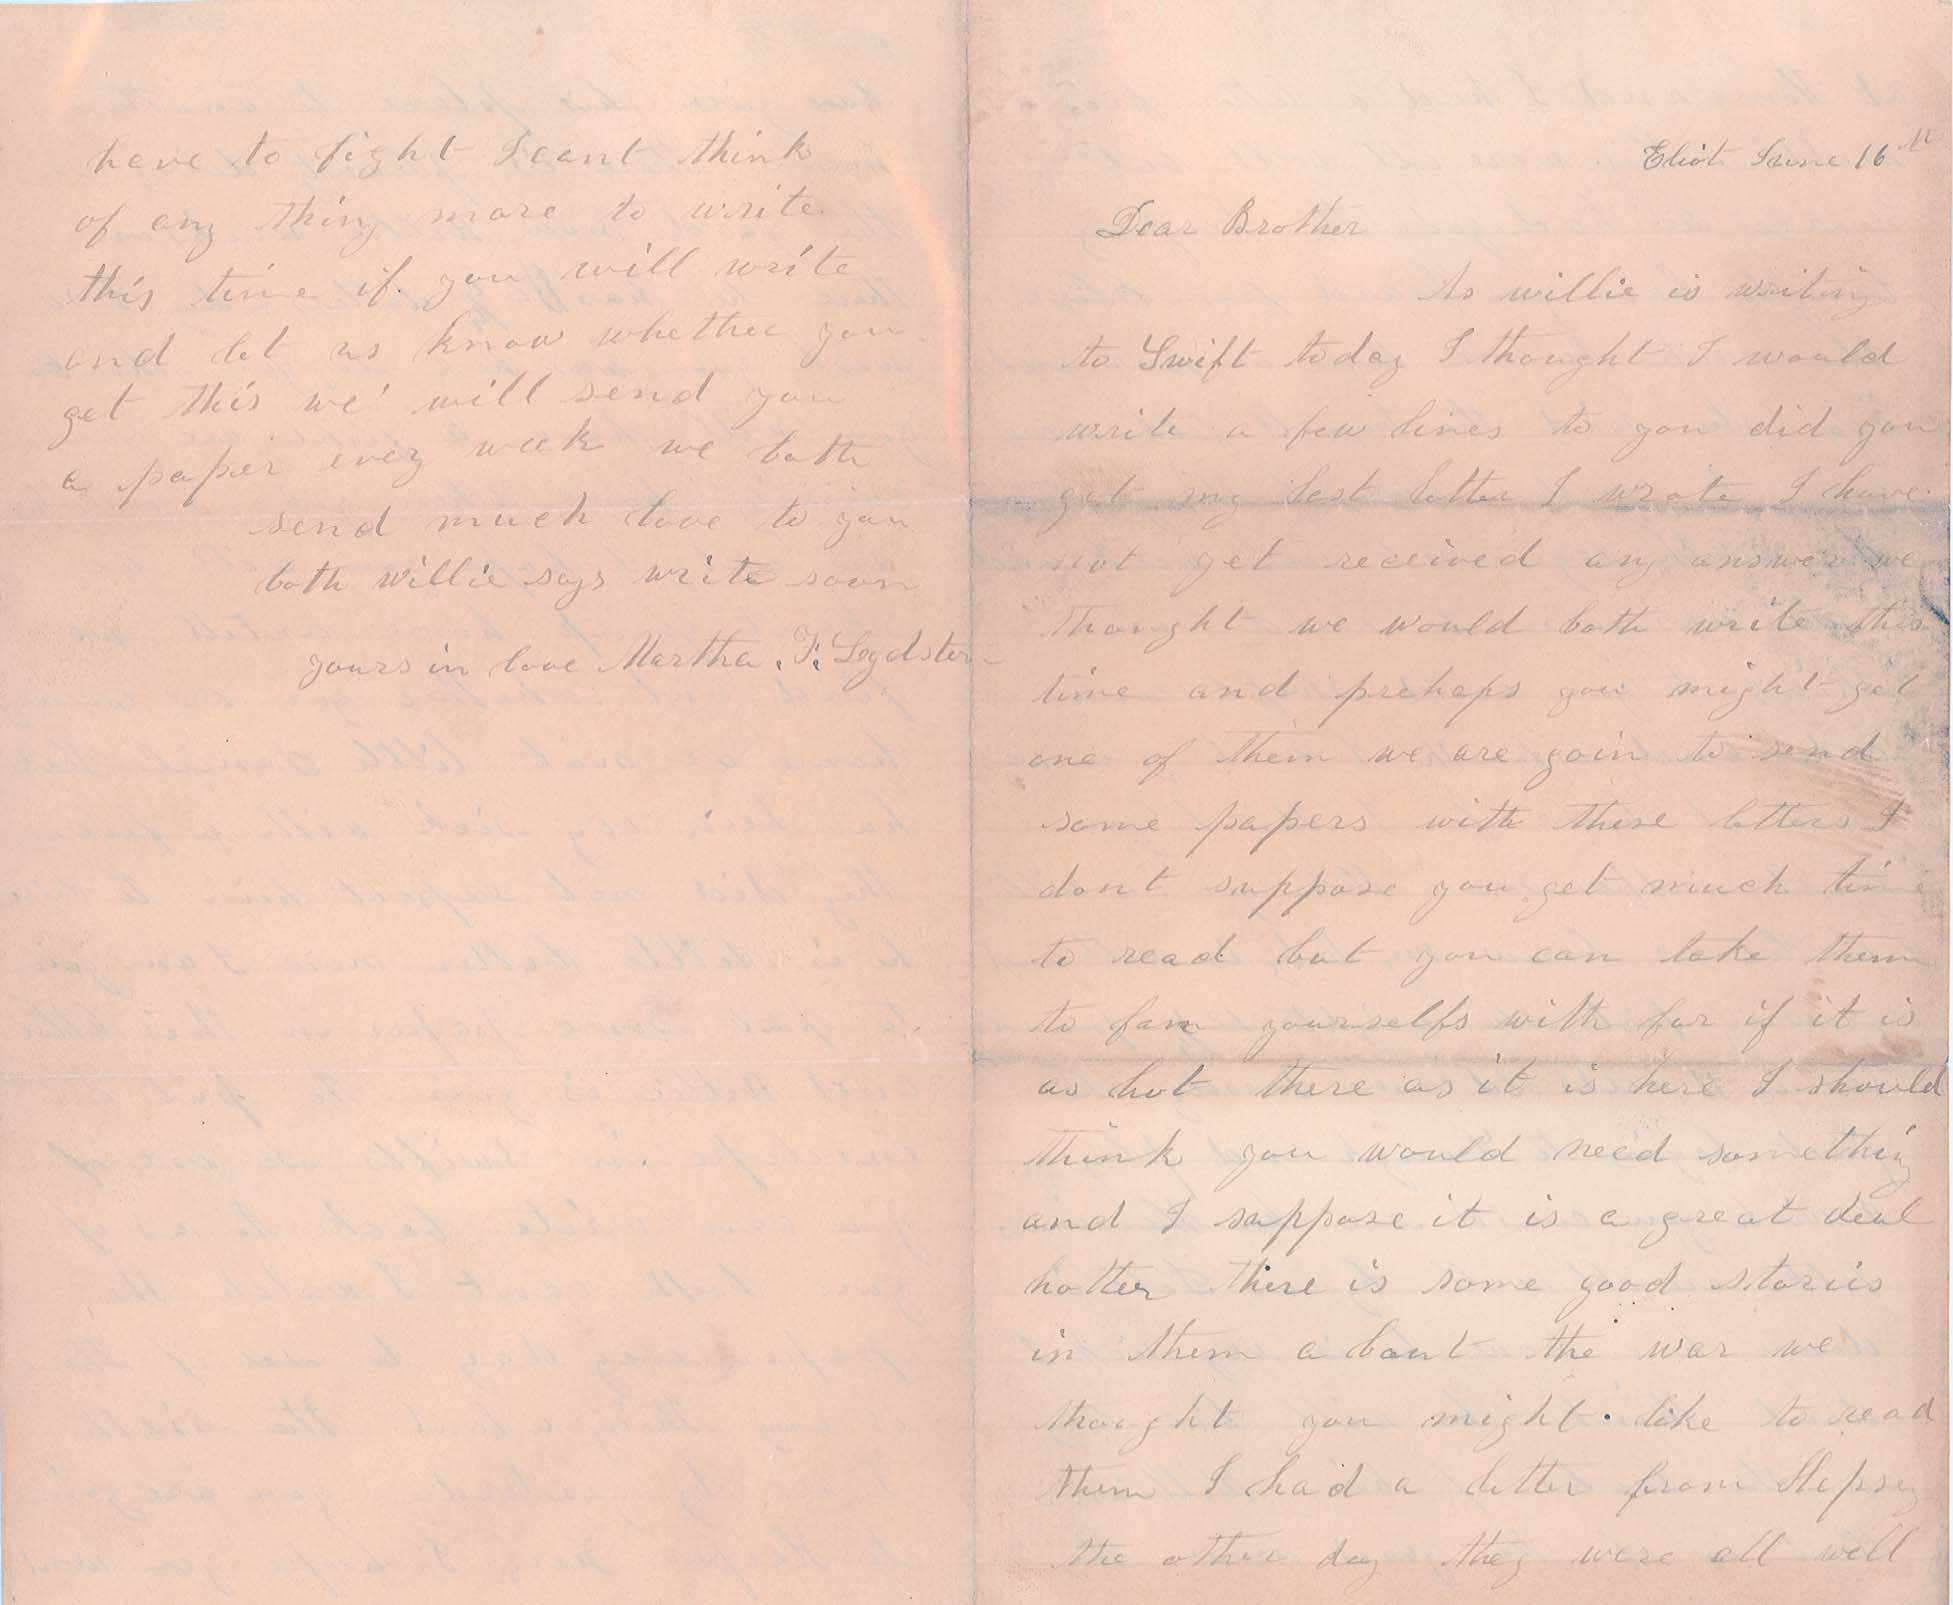 Eliot June 16th
Dear Brother
As willie is writing
to Swift today I thought I would
write a few lines to you did you
get my last letter I wrote I have
not yet received any answer we
thought we would both write this
time and prehaps you might get
one of them we are goin to send
some papers with these letters I
dont suppose you get much time
to read but you can take them
to fan yourselfs with for if it is
as hot there as it is here I should
think you would need something
and I suppose it is a great deal
hotter there is some good stories
in them a bout the war we
thought you might like to read
them I had a letter from Hepsey
the other day they were all well
have to fight I cant think
of any thing more to write
this time if you will write
and let us know whether you
get this we will send you
a paper evey week we both
send much love to you
both willie says write soon
yours in love Martha. F. Lydston